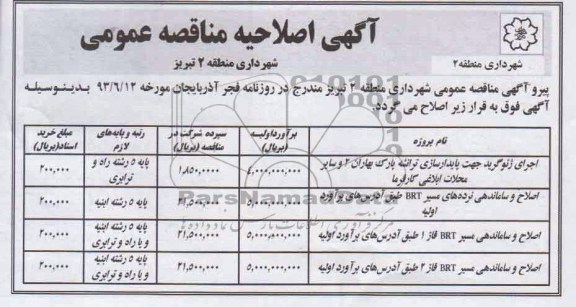 آگهی اصلاحیه مناقصه عمومی
شهرداری منطقه ۲ تبریز
شهرداری منطقه۲
پیرو آگهی مناقصه عمومی شهرداری منطقه ۲ تبریز مندرج در روزنامه فجر آذربایجان مورخه ۹۳/۶/۱۲ بدینوسیله
آگهی فوق به قرار زیر اصلاح می گردد.
نام پروژه
برآورداولیه (ریال)
سپرده شرکت در مناقصه (ریال)
رتبه و پایه‌های لازم
مبلغ خرید اسناد(ریال)
اجرای ژئوگرید جهت پایدارسازی ترانشه پارک بهاران ۲ و سایر
محلات ابلاغی کارفرما
پایه ۵ رشته راه و
ترابری
۲۰۰,۰۰۰
اصلاح و ساماندهی نرده‌های مسیر BRT طبق آدرس‌های برآورد
اولیه
پایه ۵ رشته ابنیه
۲۰۰,۰۰۰
اصلاح و ساماندهی مسیر BRT فاز ۱ طبق آدرس‌های برآورد اولیه
۵,۰۰۰,۰۰۰,۰۰۰
۲۱,۵۰۰,۰۰۰
پایه ۵ رشته ابنیه
و یا راه و ترابری
۲۰۰,۰۰۰
اصلاح و ساماندهی مسیر BRT فاز ۲ طبق آدرس‌های برآورد اولیه
۵,۰۰۰,۰۰۰,۰۰۰
۲۱,۵۰۰,۰۰۰
پایه ۵ رشته ابنیه
و یا راه و ترابری
۲۰۰,۰۰۰
ParsNamadData